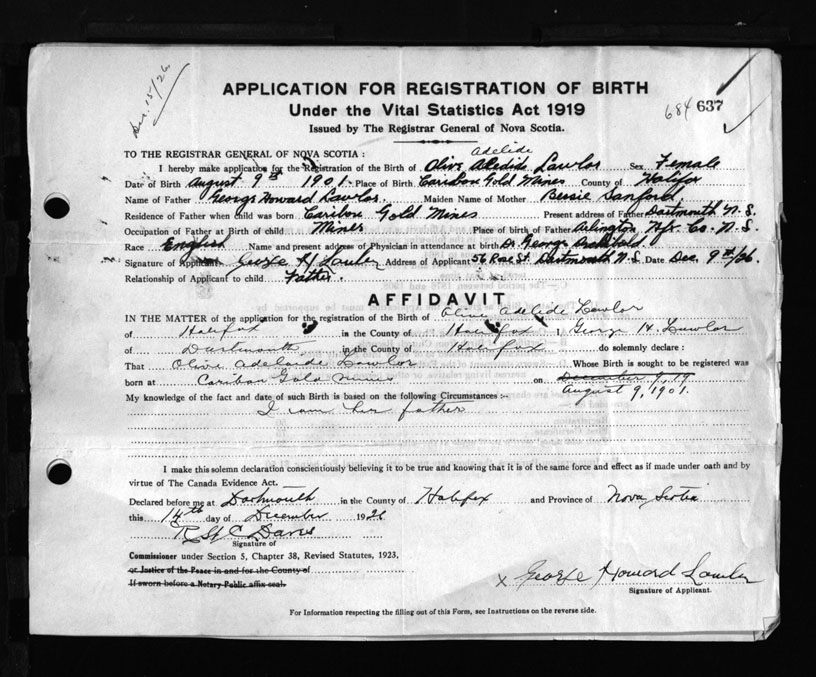 Dec. 15/26
APPLICATION FOR REGISTRATION OF BIRTH
Under the Vital Statistics Act 1919
684 637
Issued by The Registrar General of Nova Scotia.
TO THE REGISTRAR GENERAL OF NOVA SCOTIA:
Adelide
I hereby make application for the Registration of the Birth of Olive Lawlor Sex Female
Date of Birth August 9th 1901. Place of Birth Caribou Gold Mines County of Halifax
Name of Father George Howard Lawlor. Maiden Name of Mother Bessie Sanford.
Residence of Father when child was born Caribou Gold Mines Present address of Father Dartmouth N.S.
Occupation of Father at Birth of child Miner Place of Birth of Father Arlington, Hfx. Co. N.S.
Race English Name and present address of Physician in attendance at birth Dr. George Archibald.
Signature of Applicant George H Lawlor Address of Applicant 56 Rose St. Dartmouth N.S. Date Dec. 9th/26.
Relationship of Applicant to child Father.
AFFIDAVIT
IN THE MATTER of the application for the registration of the Birth of Olive Adelide Lawlor
of Halifax in the County of Halifax I George H. Lawlor
of Dartmouth in the County of Halifax do solemnly declare:
That Olive Adelaide Lawlor Whose Birth is sought to be registered was
born at Caribou Gold Mines on December 9, 19
August 9, 1901.
My knowledge of the fact and date of such Birth is based on the following Circumstances:-
I am her father
I make this solemn declaration conscientiously believing it to be true and knowing that it is of the same force and effect as if made under oath and by
virtue of The Canada Evidence Act.
Declared before me at Dartmouth in the County of Halifax and Province of Nova Scotia
this 14th day of December 1926
R St C Davis
Signature of
Commissioner under Section 5, Chapter 38, Revised Statutes, 1923,
or Justice of the Peace in and for the County of
If sworn before a Notary Public affix seal.
x George Howard Lawlor
Signature of Applicant.
For Information respecting the filling out of this Form, see Instructions on the reverse side.